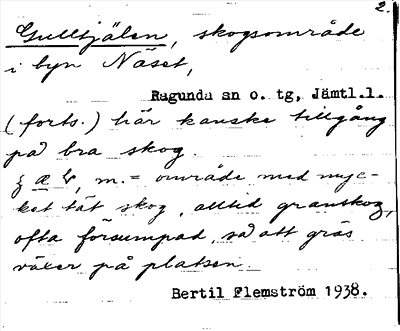 2.
Gulltjälen, skogsområde
i byn Näset,
Ragunda sn o. tg, Jämtl.l.
(forts.) här kanske tillgång
på bra skog.
m. = område med myc-
ket tät skog, alltid granskog,
ofta försumpad, så att gräs
växer på platsen
Bertil Flemström 1938.